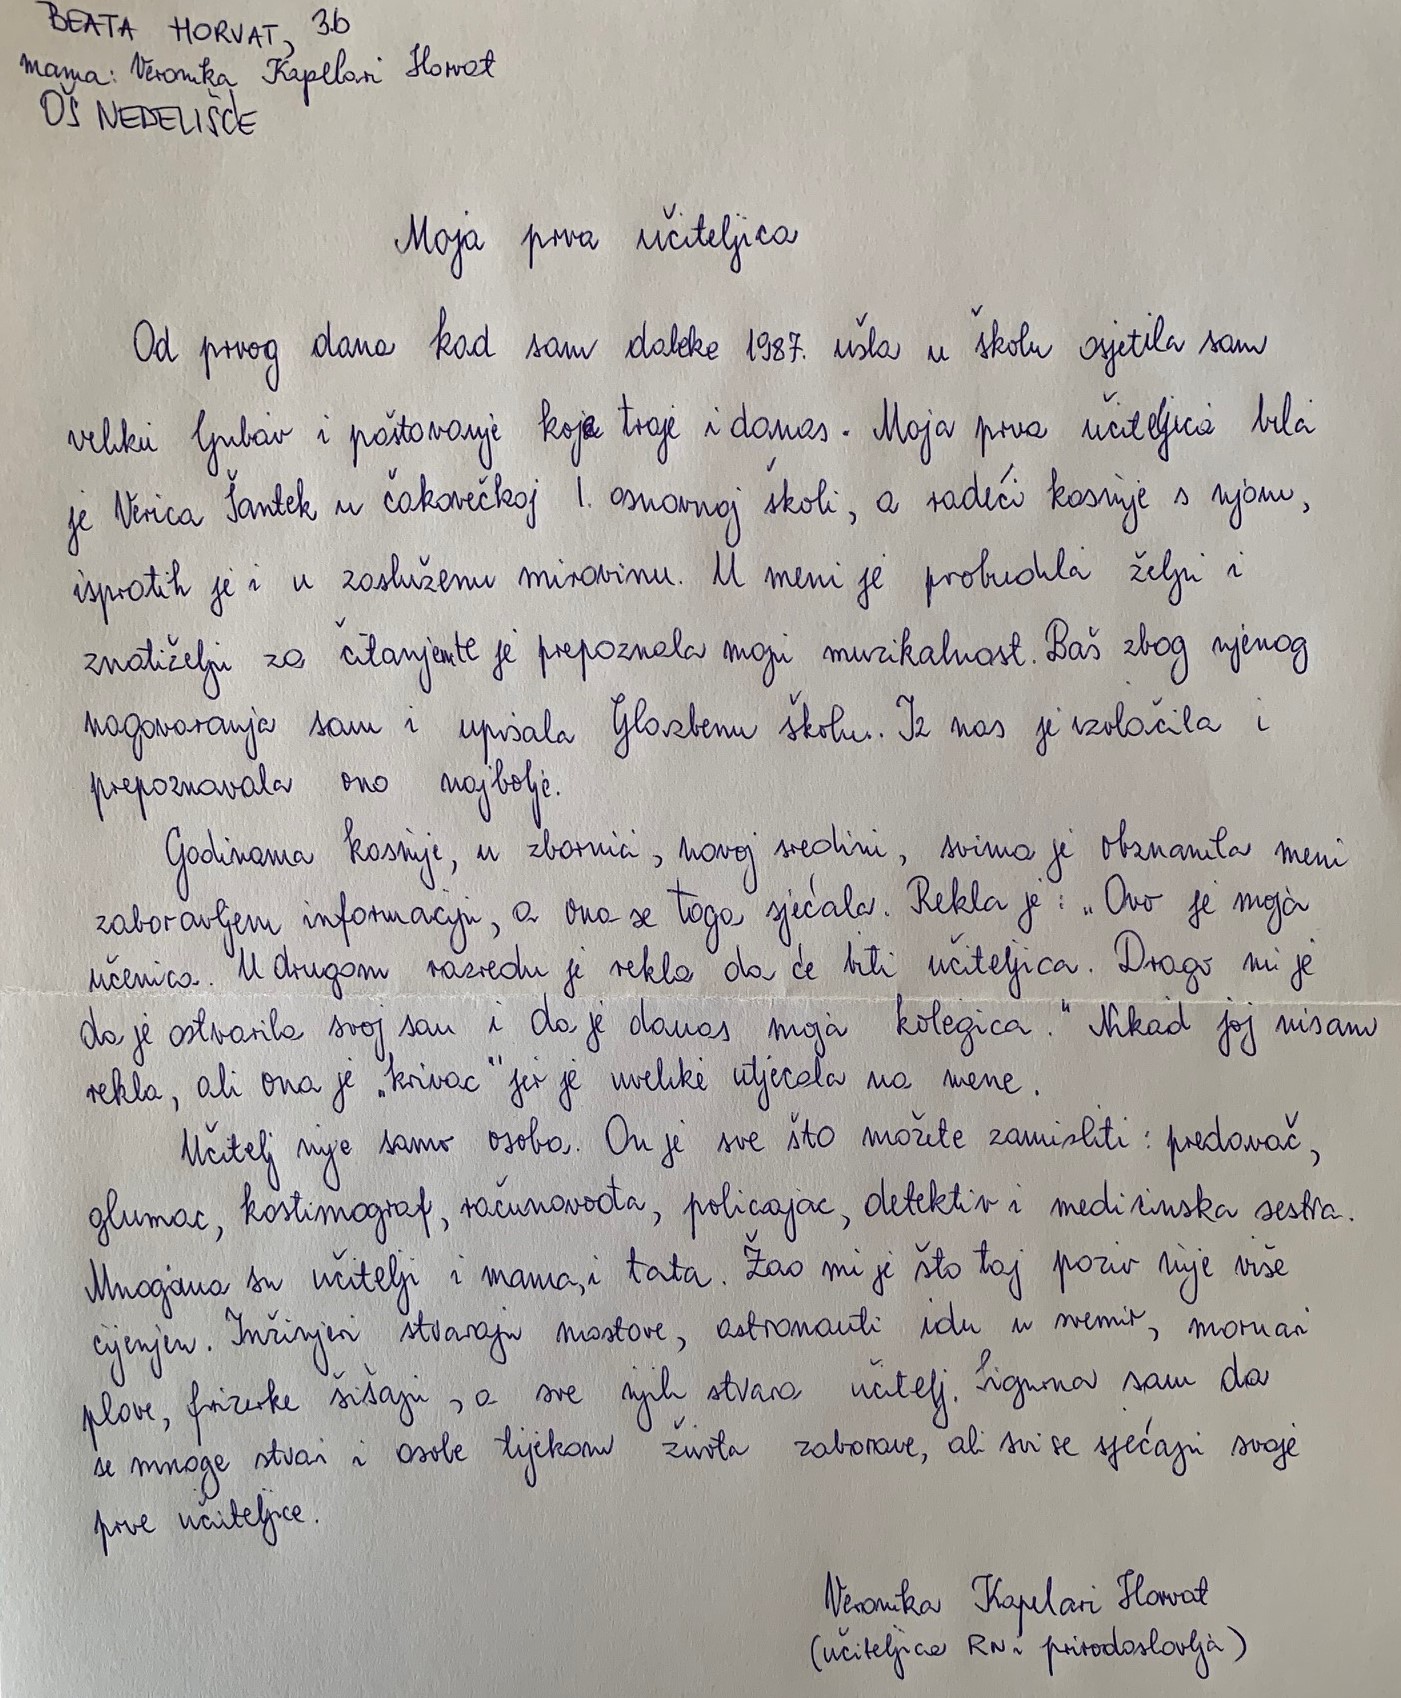 BEATA HORVAT, 3.b
mama: Veronika Kapelari Horvat
OŠ NEDELIŠĆE
Moja prva učiteljica
Od prvog dana kad sam daleke 1987. ušla u školu osjetila sam
veliku ljubav i poštovanje koje traje i danas. Moja prva učiteljica bila
je Verica Šantek u čakovečkoj I. osnovnoj školi, a radeći kasnije s njom,
ispratih je i u zasluženu mirovinu. U meni je probudila želju i
znatiželju za čitanjem te je prepoznala moju muzikalnost. Baš zbog njenog
nagovaranja sam i upisala Glazbenu školu. Iz nas je izvlačila i
prepoznavala ono najbolje.
Godinama kasnije, u zbornici, novoj sredini, svima je obznanila meni
zaboravljenu informaciju, a ona se toga sjećala. Rekla je: „Ovo je moja
učenica. U drugom razredu je rekla da će biti učiteljica. Drago mi je
da je ostvarila svoj san i da je danas moja kolegica.“ Nikad joj nisam
rekla, ali ona je „krivac“ jer je uvelike utjecala na mene.
Učitelj nije samo osoba. On je sve što možete zamisliti: predavač,
glumac, kostimograf, računovođa, policajac, detektiv i medicinska sestra.
Mnogima su učitelji i mama, i tata. Žao mi je što taj poziv nije više
cijenjen. Inžinjeri stvaraju mostove, astronauti idu u svemir, mornari
plove, frizerke šišaju, a sve njih stvara učitelj. Sigurna sam da
se mnoge stvari i osobe tijekom života zaborave, ali svi se sjećaju svoje
prve učiteljice.
Veronika Kapelari Horvat
(učiteljica RN i prirodoslovlja)